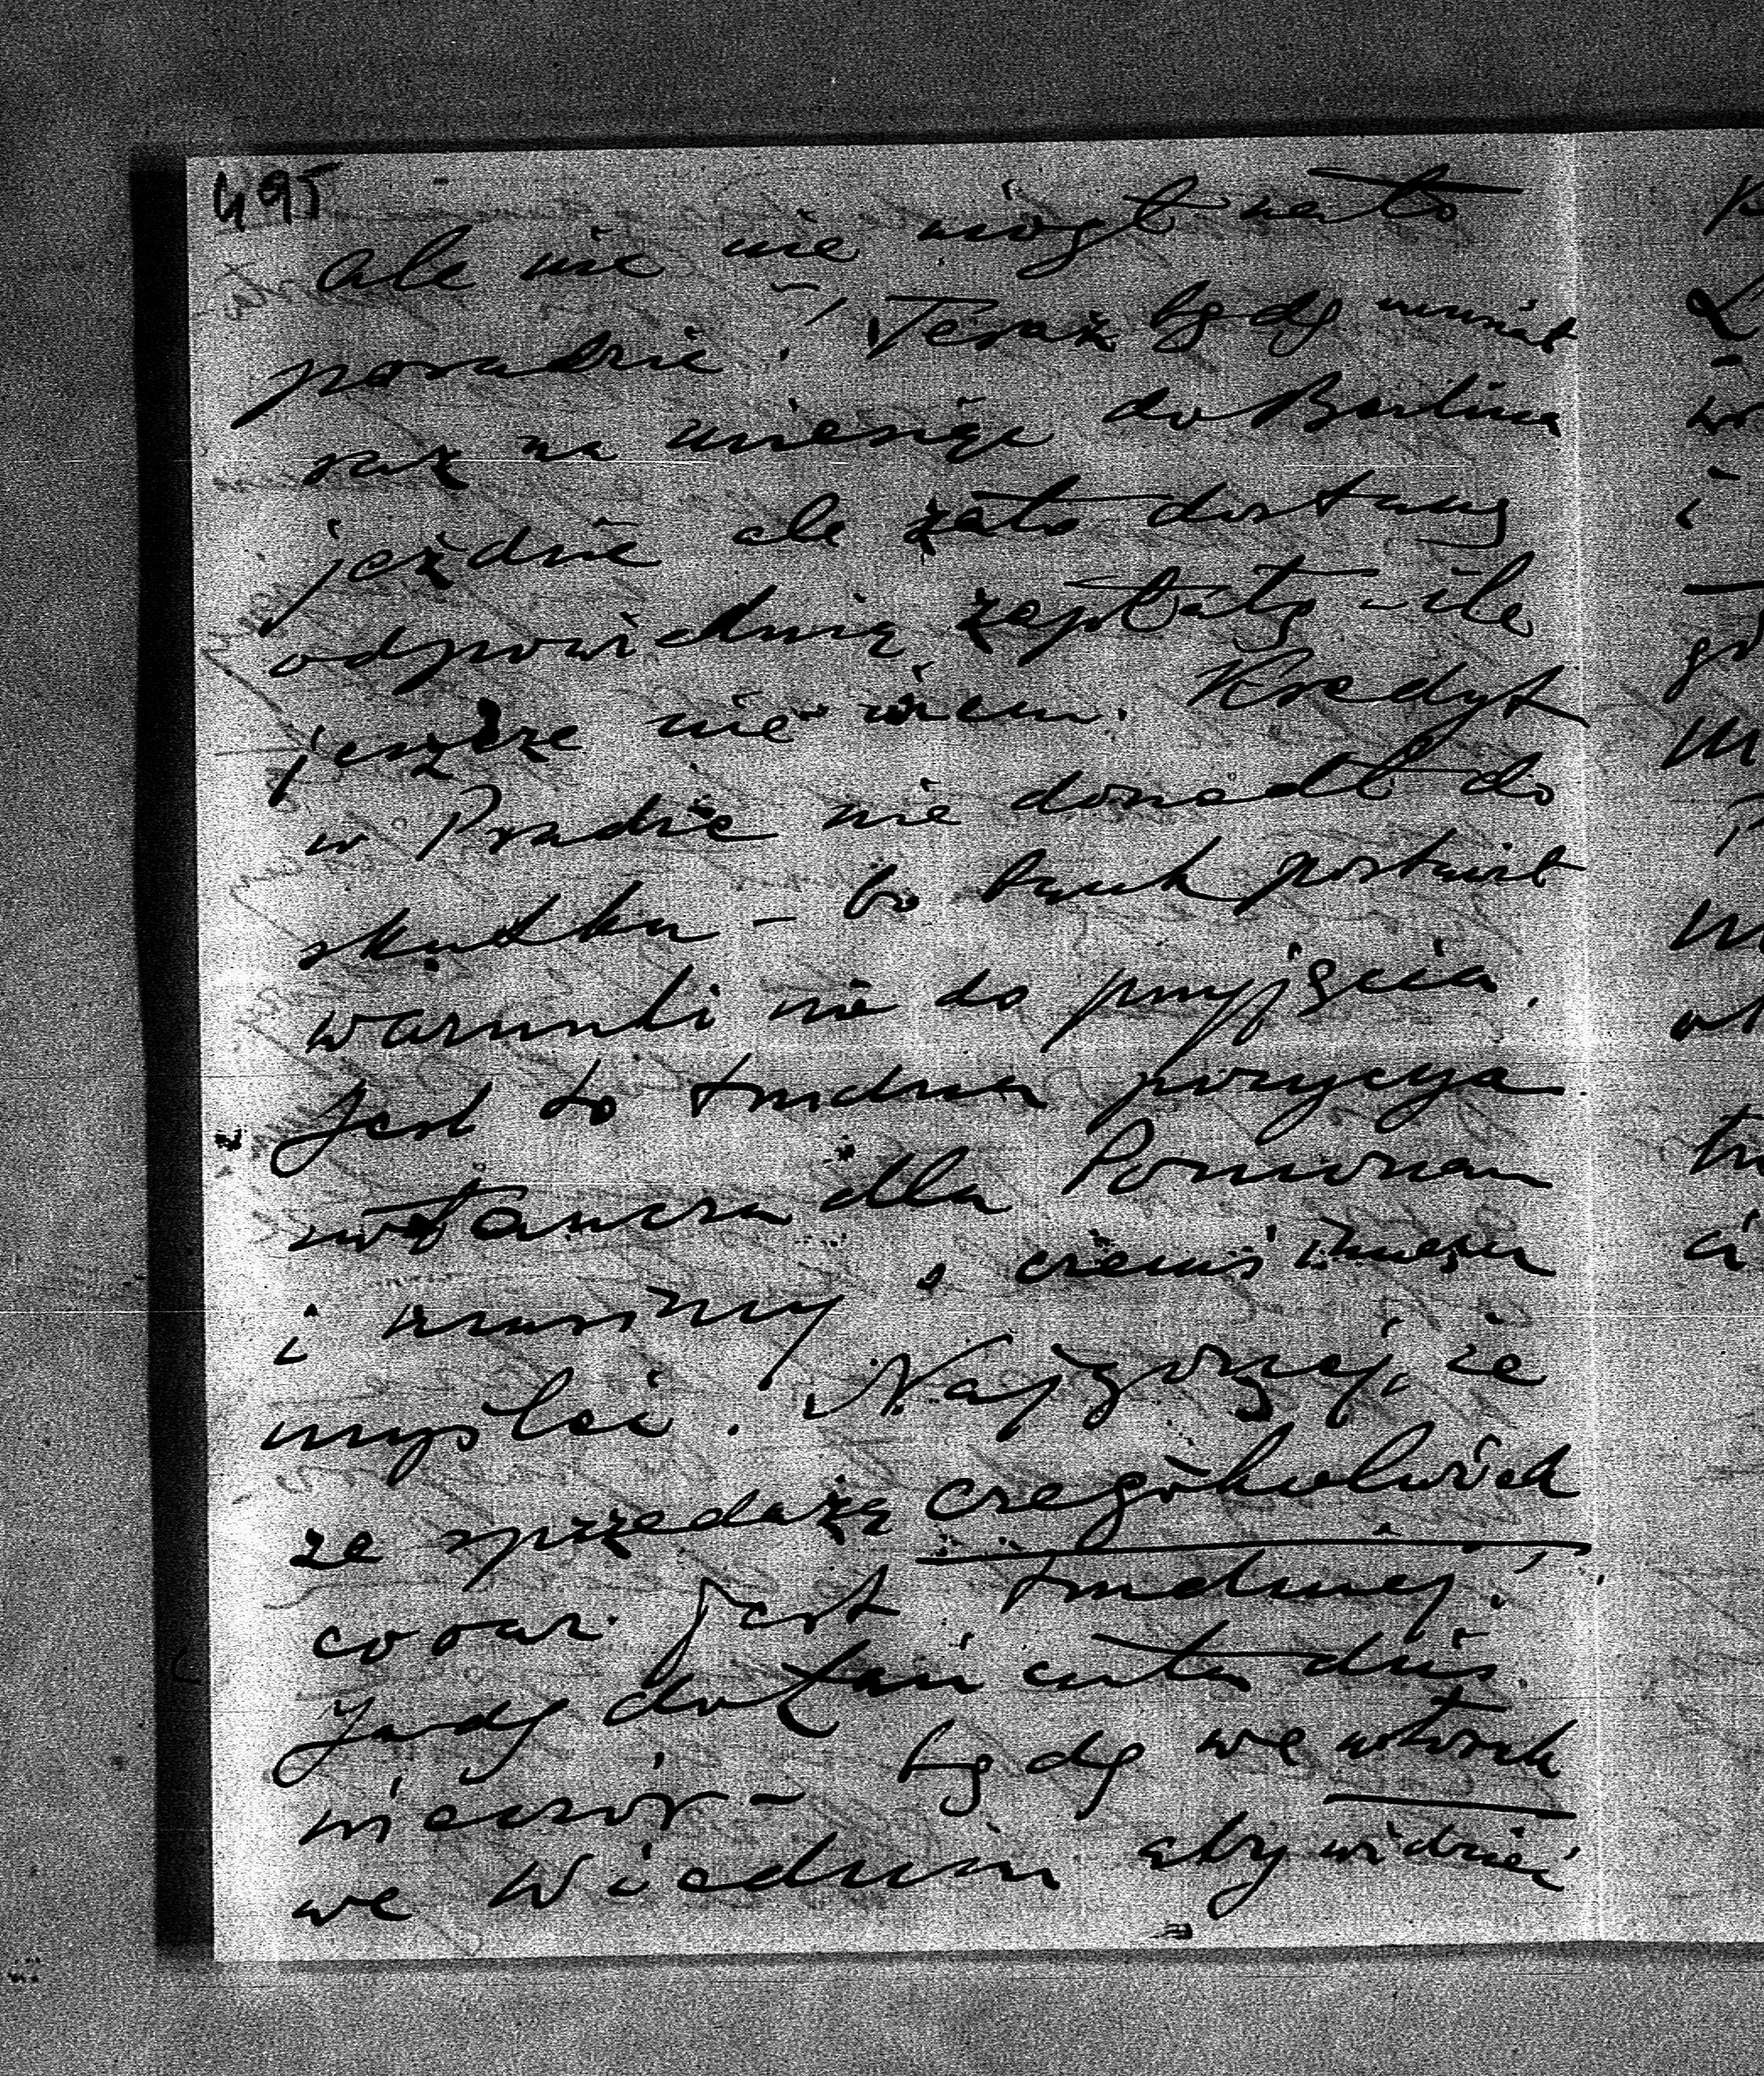 495
ale nic nie mógł na to
poradzić. Teraz będę musiał
raz na miesiąc do Berlina
jeździć ale zato dostanę
odpowiednią zapłatę – ile
jeszcze nie wiem. Kredyt
w Pradze nie doszedł do
skutku – bo bank postawił
warunki nie do przyjęcia.
Jest to trudna pozycya
zwłaszcza dla Pomorzan
i musimy o czemś innem
myśleć. Najgorzej, że
ze sprzedażą czegokolwiek
coraz jest trudniej.
Jadę do Łań auta dziś
wieczór – będę we wtorek
we Wiedniu aby widzieć